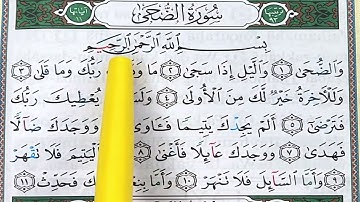 سُورَةُ الضُّحَى
بِسْمِ اللَّهِ الرَّحْمَٰنِ الرَّحِيمِ
وَالضُّحَىٰ ١ وَالَّيْلِ إِذَا سَجَىٰ ٢ مَا رَبُّكَ وَمَا قَلَىٰ ٣
وَلَلْآخِرَةُ خَيْرٌ لَّكَ مِنَ الْأُولَىٰ ٤ وَلَسَ يُعْطِيكَ رَبُّكَ
فَتَرْضَىٰ ٥ أَلَمْ يَجِدْكَ يَتِيمًا فَـَٔاوَىٰ وَوَجَدَكَ ضَالًّا
فَهَدَىٰ ٧ وَوَجَدَكَ عَآئِلًا فَأَغْنَىٰ ٨ الْيَتِيمَ فَلَا تَقْهَرْ
٩ وَأَمَّا السَّآئِلَ فَلَا تَنْهَرْ ١٠ وَأَمَّا بِنِعْمَةِ فَحَدِّثْ ١١